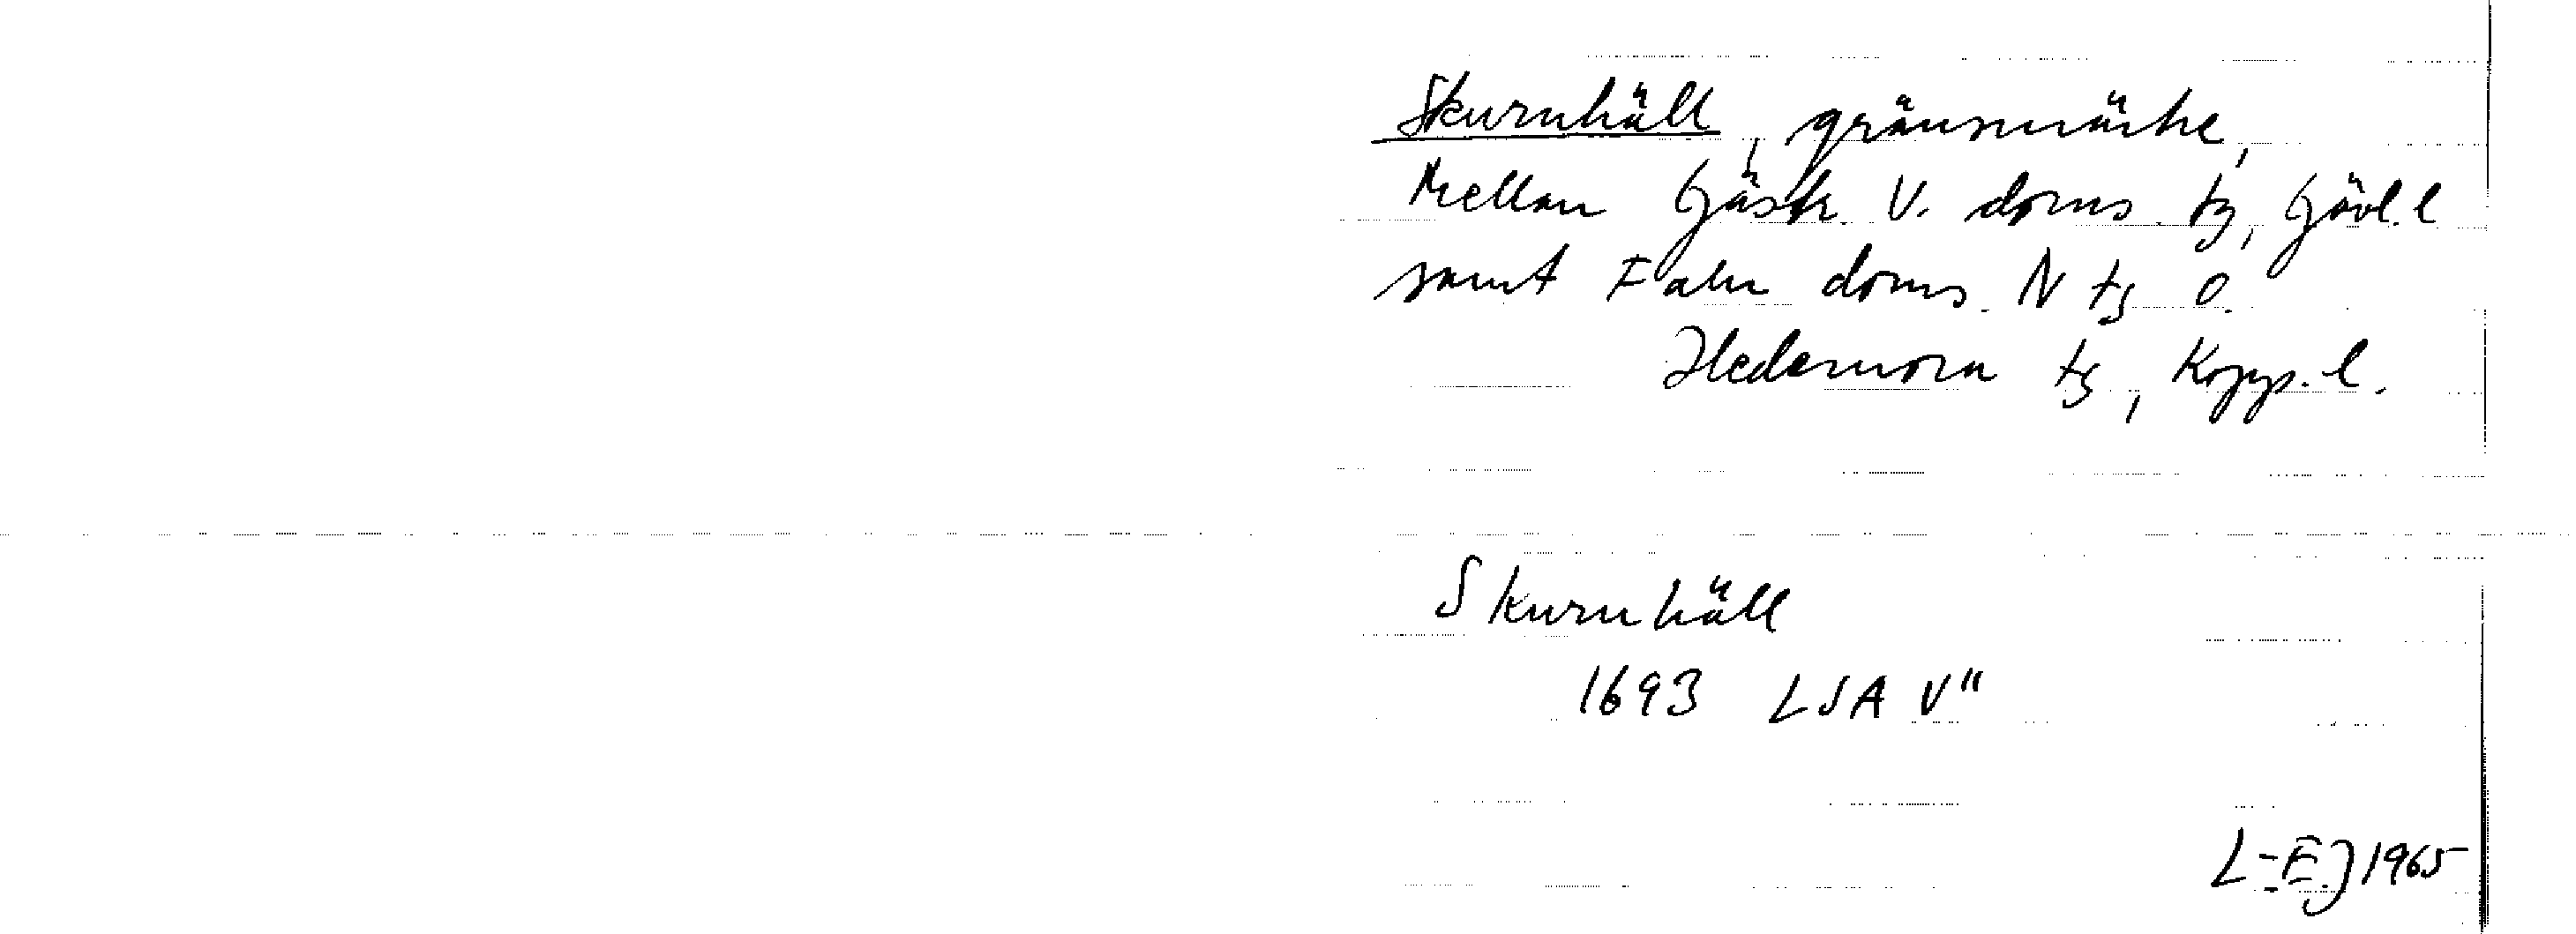 Skurnhäll, gränsmärke,
Mellan Gästr. V. doms. tg, Gävl. l
samt Falu doms. N tg o.
Hedemora tg, Kopp. l.
Skurnhäll
1693 LSA V"
L-EJ 1965